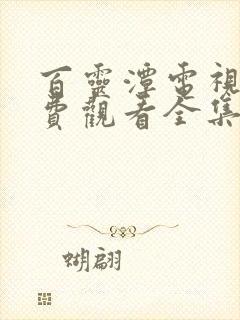 百靈潭電視
費觀看全集
蝴翩